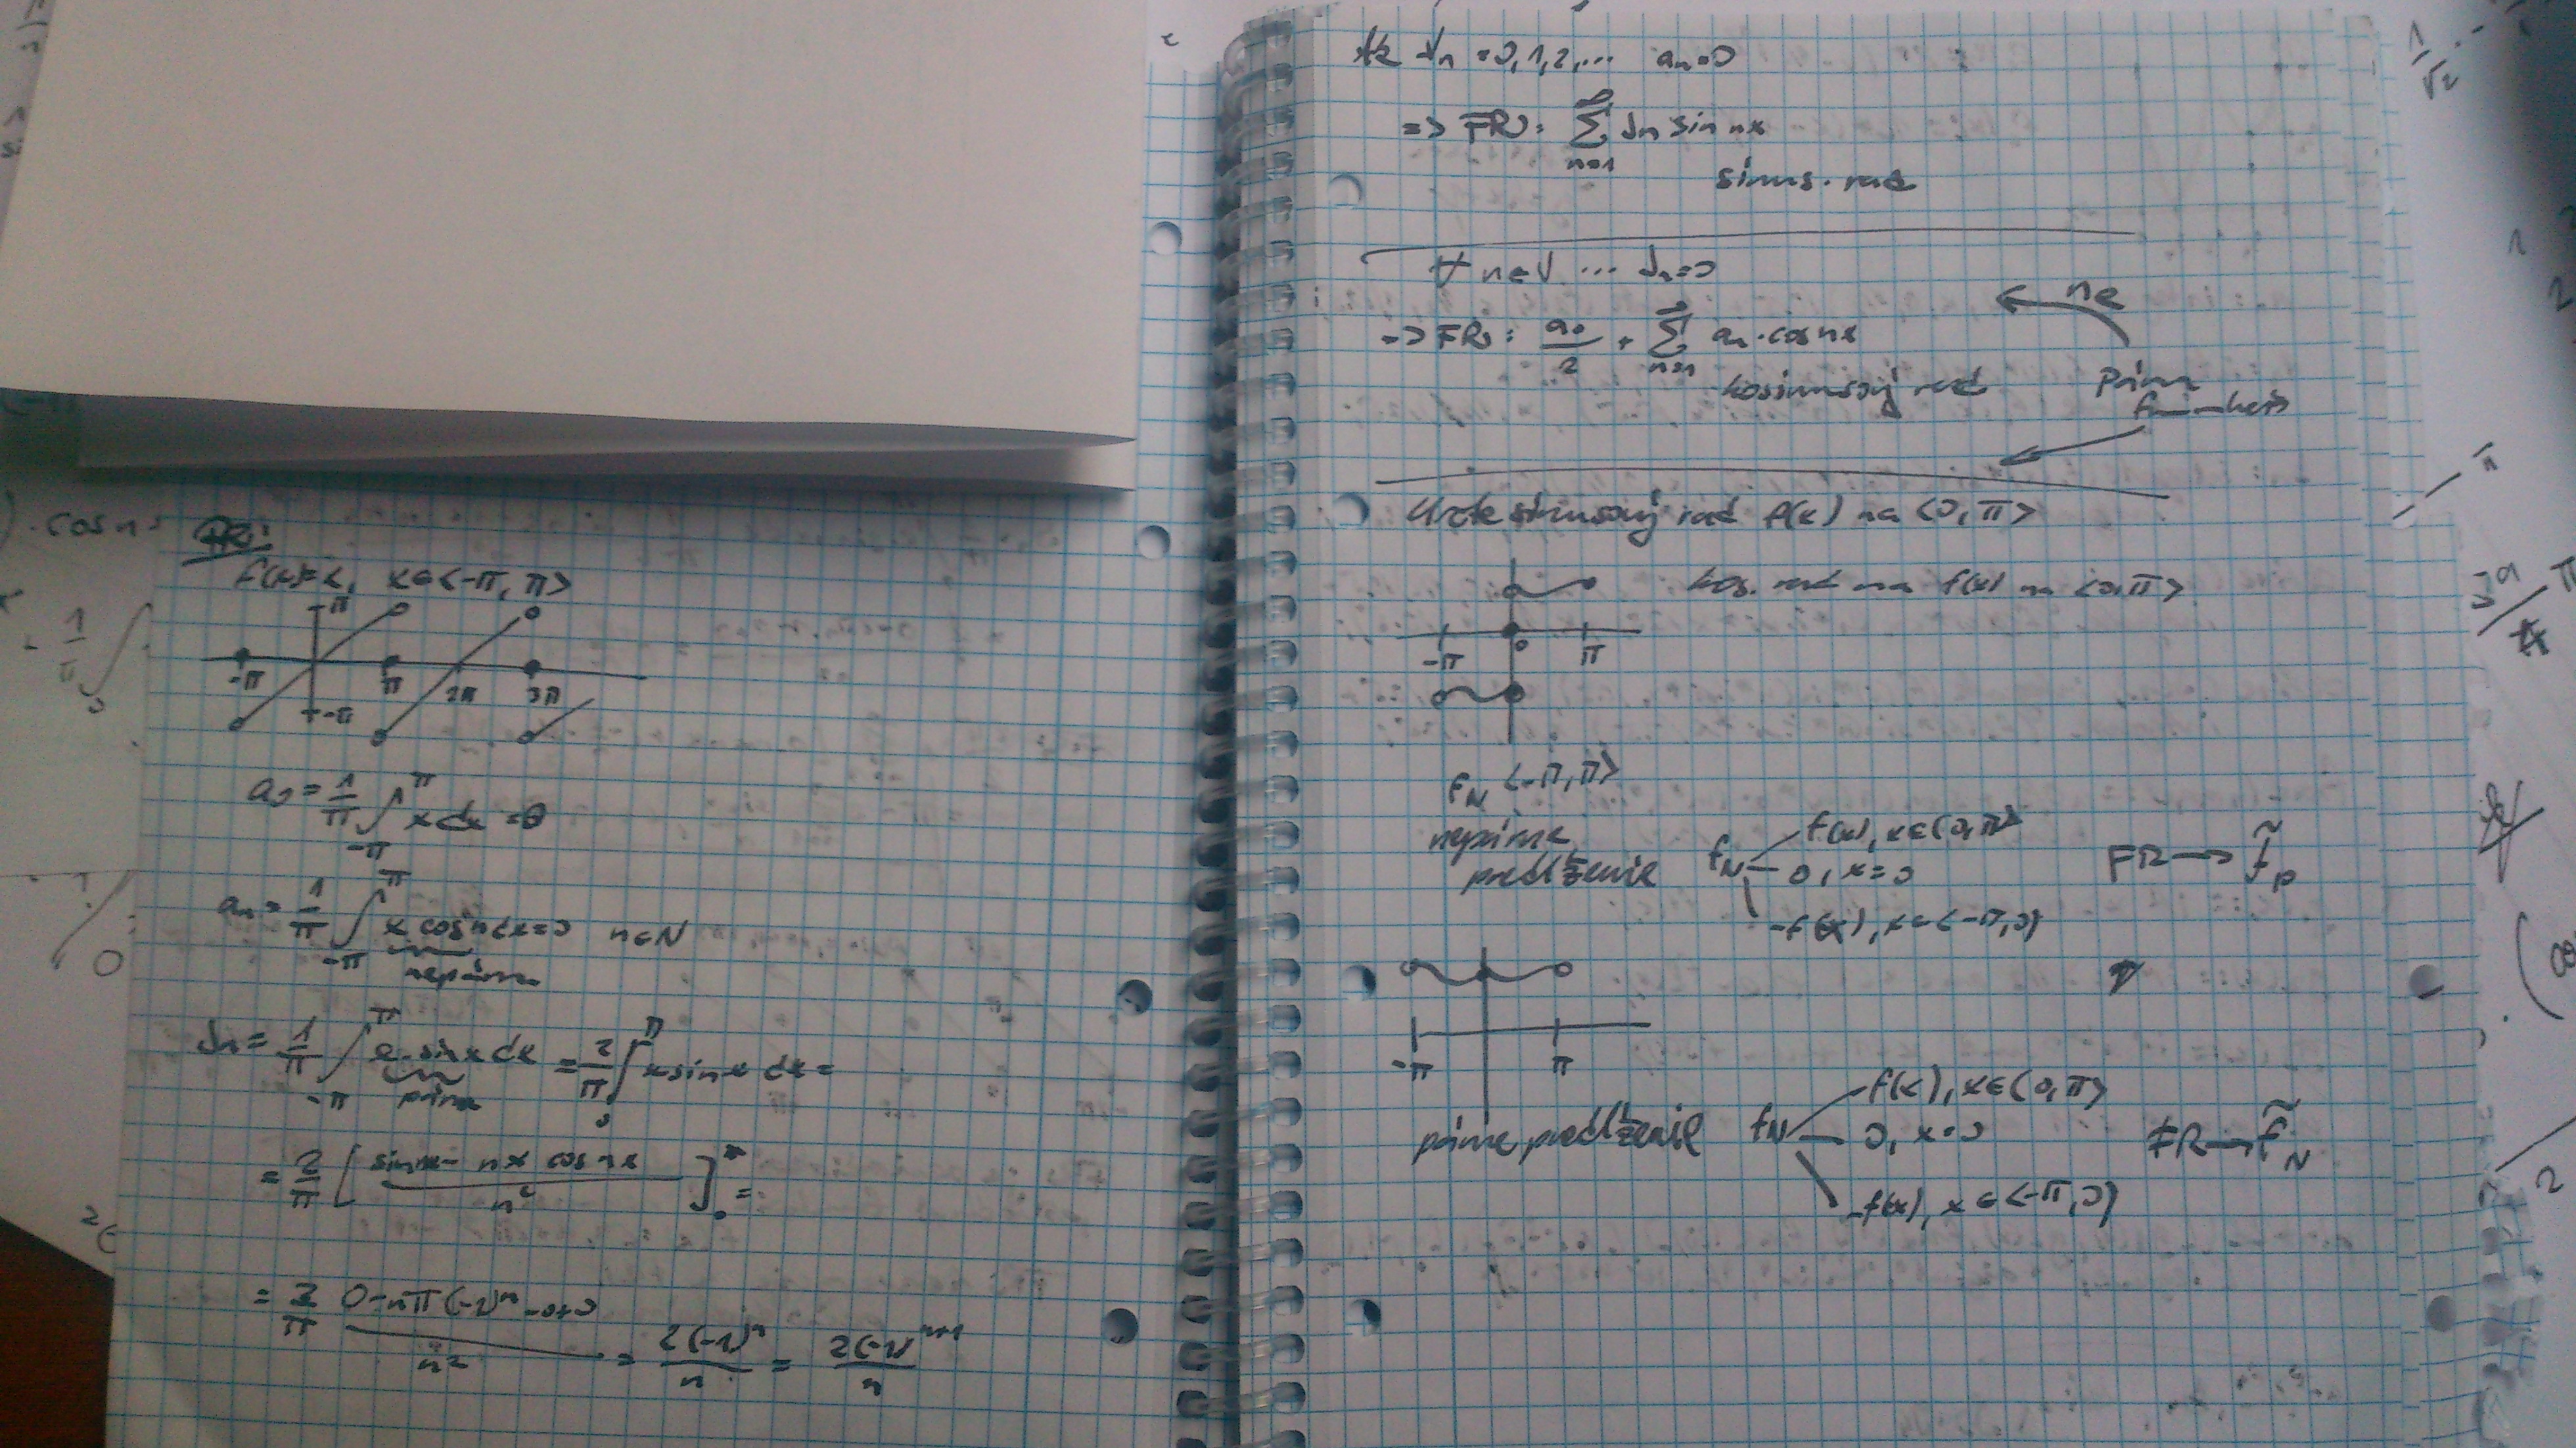 PR:
f(x)=x, x∈<-π, π>
π
-π π 2π 3π
-π
a₀ = 1/π ∫_{-π}^{π} x dx = 0
aₙ = 1/π ∫_{-π}^{π} x cosn dx = 0 n∈N
nepárna
bₙ = 1/π ∫_{-π}^{π} x·sinx dx = 2/π ∫_0^π x sinx dx =
párna
= 2/π [ (sin nx - nx cos nx)/n² ]_0^π =
= 2/π (0 - nπ(-1)ⁿ - 0+0)/n² = 2(-1)ⁿ/n = 2(-1)ⁿ⁺¹/n
Ak ∀n = 0,1,2,... aₙ=0
=> FR: ∑_{n=1}^{∞} bₙ sin nx
sinus. rad
∀ n∈N ... bₙ=0
=> FR: a₀/2 + ∑_{n=1}^{∞} aₙ·cos nx
kosinusový rad
ne
Párna
sinusový rad f(x) na <0, π>
kos. rad na f(x) na <0,π>
-π 0 π
f_N <-π, π>
nepárne
predlženie
f_N f(x), x∈(0,π>
0, x=0
-f(x), x∈<-π,0)
FR → f̃_p
-π π
párne predlženie f_N f(x), x∈(0,π>
0, x=0
-f(x), x∈<-π,0)
FR → f̃_N